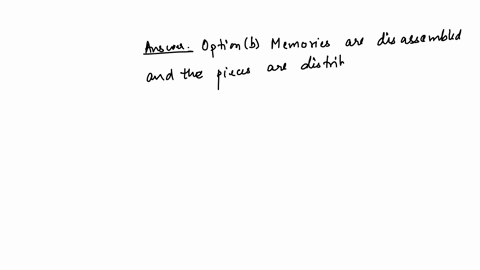 Answer. Option(b) Memories are disassembled
and the pieces are distrib